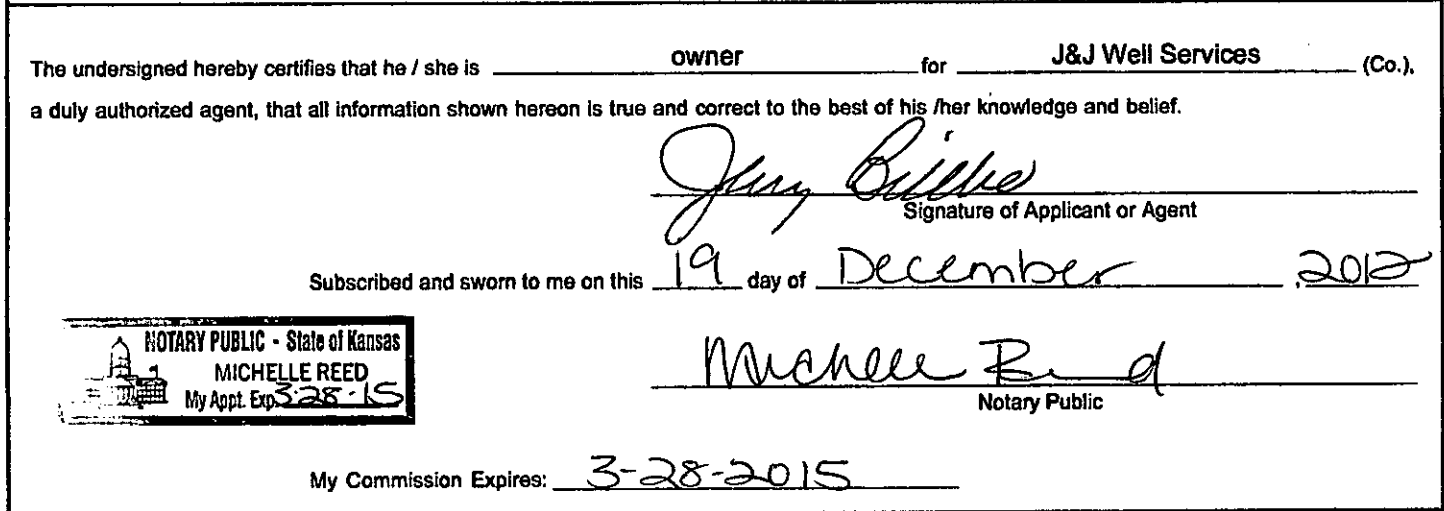 The undersigned hereby certifies that he / she is owner for J&J Well Services (Co.),
a duly authorized agent, that all information shown hereon is true and correct to the best of his /her knowledge and belief.
Signature of Applicant or Agent
Subscribed and sworn to me on this 19 day of December ,2012
NOTARY PUBLIC - State of Kansas
MICHELLE REED
My Appt. Exp. 3-28-15
Michelle Reed
Notary Public
My Commission Expires: 3-28-2015